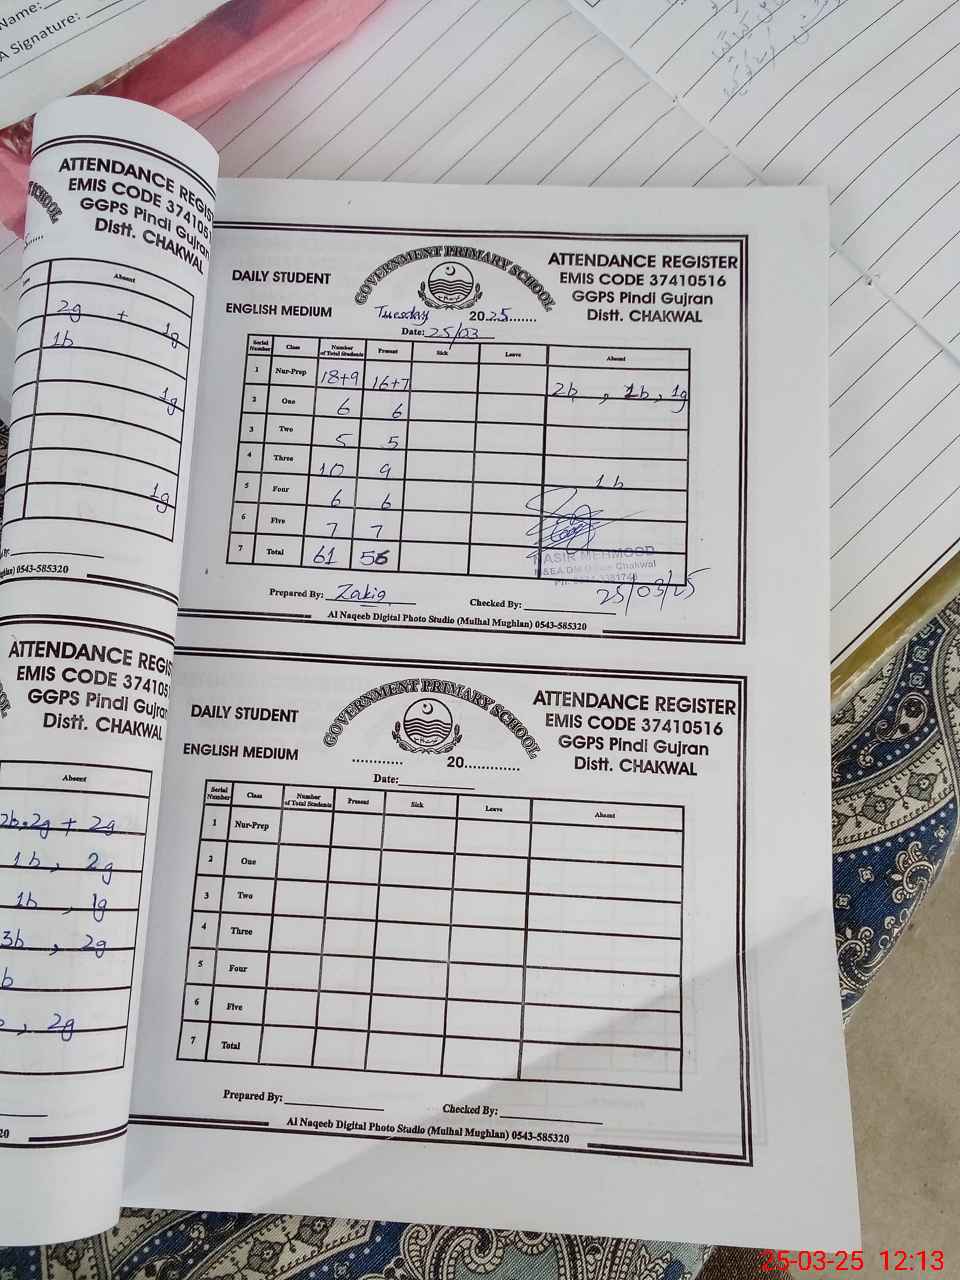 Name:
A Signature:
ATTENDANCE REGIST
EMIS CODE 3741051
GGPS Pindi Gujran
Distt. CHAKWAL
Absent
2g + 1g
1b
1g
1g
ghlan) 0543-585320
ATTENDANCE REGIS
EMIS CODE 374105
GGPS Pindi Gujran
Distt. CHAKWAL
Absent
2b, 2g + 2g
1b, 2g
1b, 1g
3b, 2g
b
, 2g
20
DAILY STUDENT
ENGLISH MEDIUM
GOVERNMENT PRIMARY SCHOOL
ATTENDANCE REGISTER
EMIS CODE 37410516
GGPS Pindi Gujran
Distt. CHAKWAL
Tuesday 2025
Date: 25/03
Serial Number Class Number of Total Students Present Sick Leave Absent
1 Nur-Prep 18+9 16+7 2b, 1b, 1g
2 One 6 6
3 Two 5 5
4 Three 10 9 1b
5 Four 6 6
6 Five 7 7
7 Total 61 56
NASIR MEHMOOD
M&EA DM Chakwal
25/03/25
Prepared By: Zakia Checked By:
Al Naqeeb Digital Photo Studio (Mulhal Mughlan) 0543-585320
DAILY STUDENT
ENGLISH MEDIUM
GOVERNMENT PRIMARY SCHOOL
ATTENDANCE REGISTER
EMIS CODE 37410516
GGPS Pindi Gujran
Distt. CHAKWAL
............ 20.............
Date:
Serial Number Class Number of Total Students Present Sick Leave Absent
1 Nur-Prep
2 One
3 Two
4 Three
5 Four
6 Five
7 Total
Prepared By: Checked By:
Al Naqeeb Digital Photo Studio (Mulhal Mughlan) 0543-585320
25-03-25 12:13